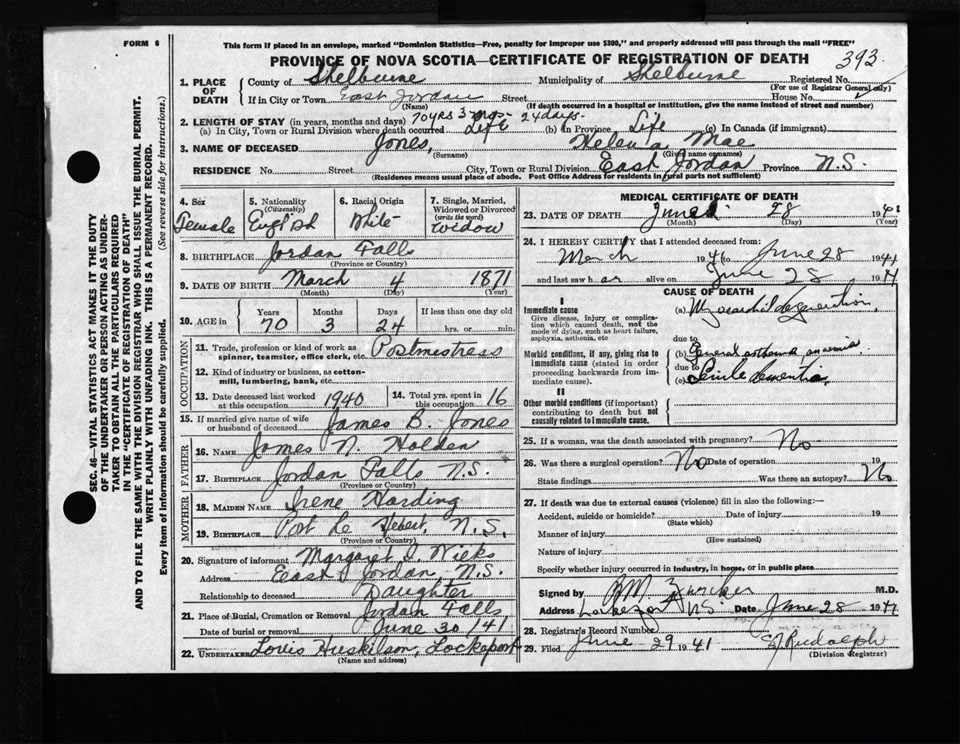 FORM 6
This form if placed in an envelope, marked "Dominion Statistics—Free, penalty for improper use $300," and properly addressed will pass through the mail "FREE"
PROVINCE OF NOVA SCOTIA—CERTIFICATE OF REGISTRATION OF DEATH 393
1. PLACE OF DEATH County of Shelburne Municipality of Shelburne Registered No.
(For use of Registrar General only)
If in City or Town East Jordan Street House No.
(Name) (If death occurred in a hospital or institution, give the name instead of street and number)
2. LENGTH OF STAY (in years, months and days) 70 yrs 3 mos- 24 days-
(a) In City, Town or Rural Division where death occurred Life (b) in Province Life (c) In Canada (if immigrant)
3. NAME OF DECEASED Jones, Helena Mae
(Surname) (Given name or names)
RESIDENCE No. Street City, Town or Rural Division East Jordan Province N.S.
(Residence means usual place of abode. Post Office Address for residents in rural parts not sufficient)
4. Sex Female
5. Nationality (Citizenship) English
6. Racial Origin White
7. Single, Married, Widowed or Divorced (write the word) Widow
8. BIRTHPLACE Jordan Falls
(Province or Country)
9. DATE OF BIRTH March 4 1871
(Month) (Day) (Year)
10. AGE in Years 70 Months 3 Days 24 If less than one day old hrs. or min.
OCCUPATION
11. Trade, profession or kind of work as spinner, teamster, office clerk, etc. Postmestress
12. Kind of industry or business, as cotton-mill, lumbering, bank, etc.
13. Date deceased last worked at this occupation 1940 14. Total yrs. spent in this occupation 16
15. If married give name of wife or husband of deceased James B. Jones
FATHER
16. NAME James N. Holden
17. BIRTHPLACE Jordan Falls N.S.
(Province or Country)
MOTHER
18. MAIDEN NAME Irene Harding
19. BIRTHPLACE Port Le Hebert, N.S.
(Province or Country)
20. Signature of informant Margaret I. Wicks
Address East Jordan, N.S.
Relationship to deceased Daughter
21. Place of Burial, Cremation or Removal Jordan Falls
Date of burial or removal June 30/41
22. UNDERTAKER Lovis Huskilson, Lockeport
(Name and address)
MEDICAL CERTIFICATE OF DEATH
23. DATE OF DEATH June 28 1941
(Month) (Day) (Year)
24. I HEREBY CERTIFY that I attended deceased from:
March 1941 to June 28 1941
and last saw her alive on June 28 1941
CAUSE OF DEATH
I
Immediate cause
Give disease, injury or complication which caused death, not the mode of dying, such as heart failure, asphyxia, asthenia, etc
(a) Myocardial degeneration
due to
Morbid conditions, if any, giving rise to immediate cause (stated in order proceeding backwards from immediate cause).
(b) General asthenia anaemia
due to
(c) Senile dementia
II
Other morbid conditions (if important) contributing to death but not causally related to immediate cause.
25. If a woman, was the death associated with pregnancy? No
26. Was there a surgical operation? No Date of operation 19
State findings Was there an autopsy? No
27. If death was due to external causes (violence) fill in also the following:—
Accident, suicide or homicide? Date of injury 19
(State which)
Manner of injury
(How sustained)
Nature of injury
Specify whether injury occurred in industry, in home, or in public place
Signed by M.D.
Address Lockeport N.S. Date June 28 1941
28. Registrar's Record Number
29. Filed June 29 1941 Rudolph
(Division Registrar)
SEC. 46—VITAL STATISTICS ACT MAKES IT THE DUTY
OF THE UNDERTAKER OR PERSON ACTING AS UNDERTAKER
TO OBTAIN ALL THE PARTICULARS REQUIRED
IN THE "CERTIFICATE OF REGISTRATION OF DEATH"
AND TO FILE THE SAME WITH THE DIVISION REGISTRAR WHO SHALL ISSUE THE BURIAL PERMIT.
WRITE PLAINLY WITH UNFADING INK. THIS IS A PERMANENT RECORD.
Every item of information should be carefully supplied. (See reverse side for instructions.)